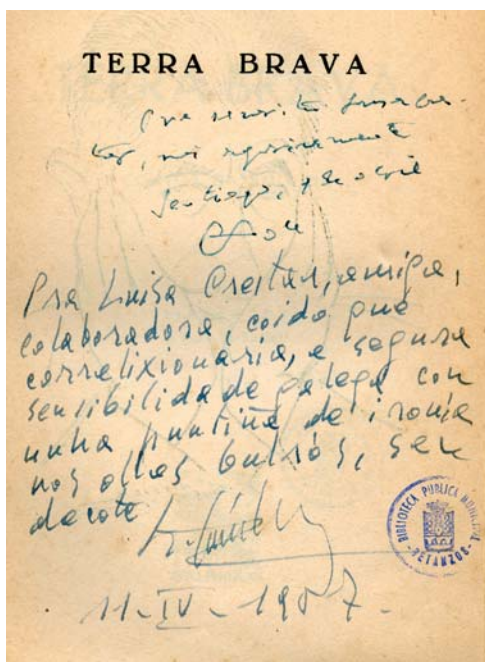 TERRA BRAVA
Pra
tas, moi agarimosamente
Santiago, abril
Pra Luisa Creitas, amiga,
colaboradora, coido que
correlixionaria, e segura
sensibilidade galega con
unha puntiña de ironía
nos ollos bulrós, seu
decote
BIBLIOTECA PUBLICA MUNICIPAL
-BETANZOS-
11-IV-1957.